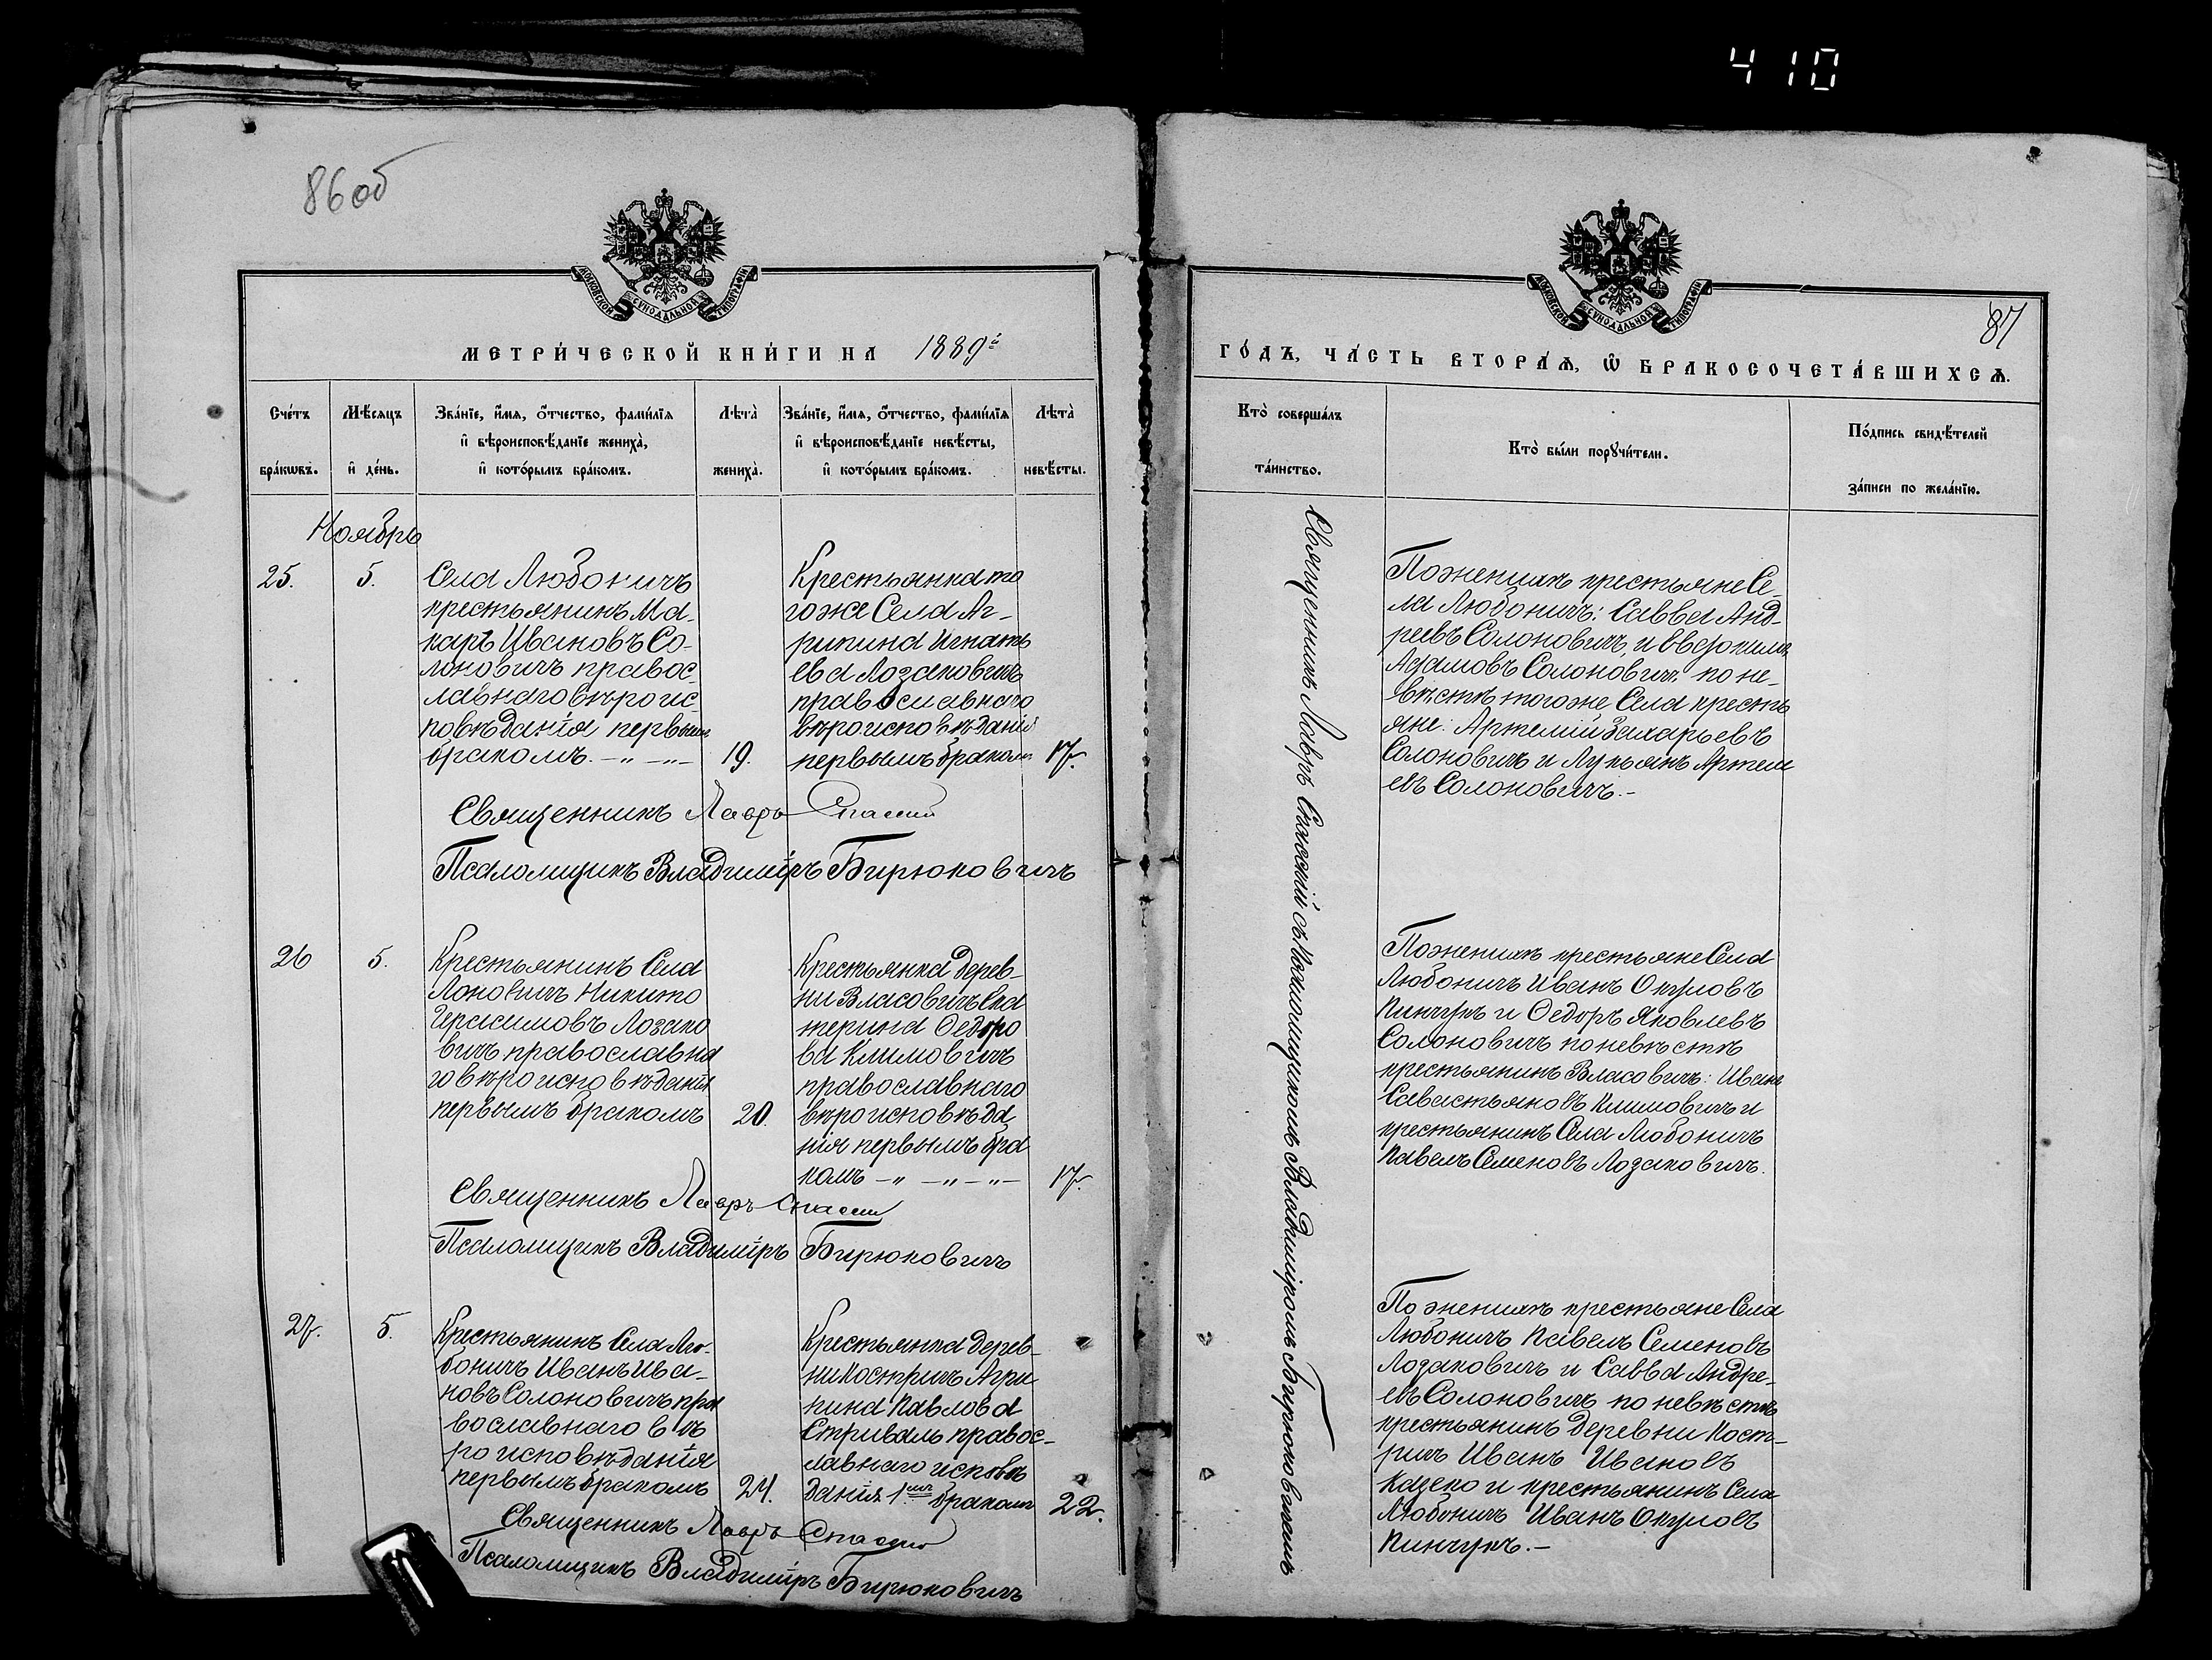 410
86об
МОСКОВСКОЙ СѴНОДАЛЬНОЙ ТИПОГРАФІИ
МЕТРИ́ЧЕСКОЙ КНИ́ГИ НА 1889й
Сче́тъ бра́кѡвъ.
Мѣ́сяцъ и҆ де́нь.
Зва́нїе, и҆́мѧ, ѻ҆́тчество, фами́лїѧ
и҆ вѣроисповѣ́данїе жениха̀,
и҆ кото́рымъ бра́комъ.
Лѣта̀ жениха̀.
Зва́нїе, и҆́мѧ, ѻ҆́тчество, фами́лїѧ
и҆ вѣроисповѣ́данїе невѣ́сты,
и҆ кото́рымъ бра́комъ.
Лѣта̀ невѣ́сты.
Ноябрь
25.
5.
Села Любоничъ
крестьянинъ Ма-
каръ Ивановъ Со-
лоновичъ правос-
лавнаго вѣроис-
повѣданія первымъ
бракомъ. -"- -"-
19.
Крестьянка то
гоже Села Аг-
рипина Игнать
ева Лозаковичъ
православнаго
вѣроисповѣданія
первымъ бракомъ
17.
Священникъ Лавръ Спасскій
Псаломщикъ Владиміръ Бирюковичъ
26
5.
Крестьянинъ Села
Лоновичъ Никито
Герасимовъ Лозако
вичъ православна
го вѣроисповѣданія
первымъ бракомъ
20.
Крестьянка дерев-
ни Власовичъ Ека
терина Ѳедоро
ва Климовичъ
православнаго
вѣроисповѣда
нія первымъ бра
комъ -"- -"- -"-
17.
Священникъ Лавръ Спасскій
Псаломщикъ Владиміръ Бирюковичъ
27.
5.
Крестьянинъ Села Лю-
боничъ Иванъ Ива-
новъ Солоновичъ пра
вославнаго вѣ
роисповѣданія
первымъ бракомъ
24.
Крестьянка дерев-
ни Костричъ Агри
пина Павлова
Стриваль правос-
лавнаго исповѣ
данія 1мъ бракомъ
22.
Священникъ Лавръ Спасскій
Псаломщикъ Владиміръ Бирюковичъ
87
МОСКОВСКОЙ СѴНОДАЛЬНОЙ ТИПОГРАФІИ
ГО́ДЪ, ЧА́СТЬ ВТОРА́Ѧ, Ѡ҆ БРАКОСОЧЕТА́ВШИХСѦ.
Кто̀ соверша́лъ
та́инство.
Кто̀ бы́ли порꙋчи́тели.
По́дпись свидѣ́телей
за́писи по жела́нїю.
Священникъ Лавръ Спасскій съ Псаломщикомъ Владиміромъ Бирюковичемъ
По женихѣ крестьяне Се-
ла Любоничъ: Савва Анд-
реевъ Солоновичъ, и Евдокимъ
Адамовъ Солоновичъ по не-
вѣстѣ тогоже Села кресть
яне: Артемій Захарьевъ
Солоновичъ и Лукьянъ Артемь
евъ Солоновичъ.-
По женихѣ крестьяне Села
Любоничъ Иванъ Окуловъ
Пинчукъ и Ѳедоръ Яковлевъ
Солоновичъ по невѣстѣ
крестьянинъ Власовичъ: Иванъ
Савастьяновъ Климовичъ и
крестьянинъ Села Любоничъ
Павелъ Семеновъ Лозаковичъ.
По женихѣ крестьяне Села
Любоничъ Павелъ Семеновъ
Лозаковичъ и Савва Андре-
евъ Солоновичъ по невѣстѣ
крестьянинъ деревни Кост-
ричъ Иванъ Ивановъ
Казеко и крестьянинъ Села
Любоничъ Иванъ Окуловъ
Пинчукъ.-